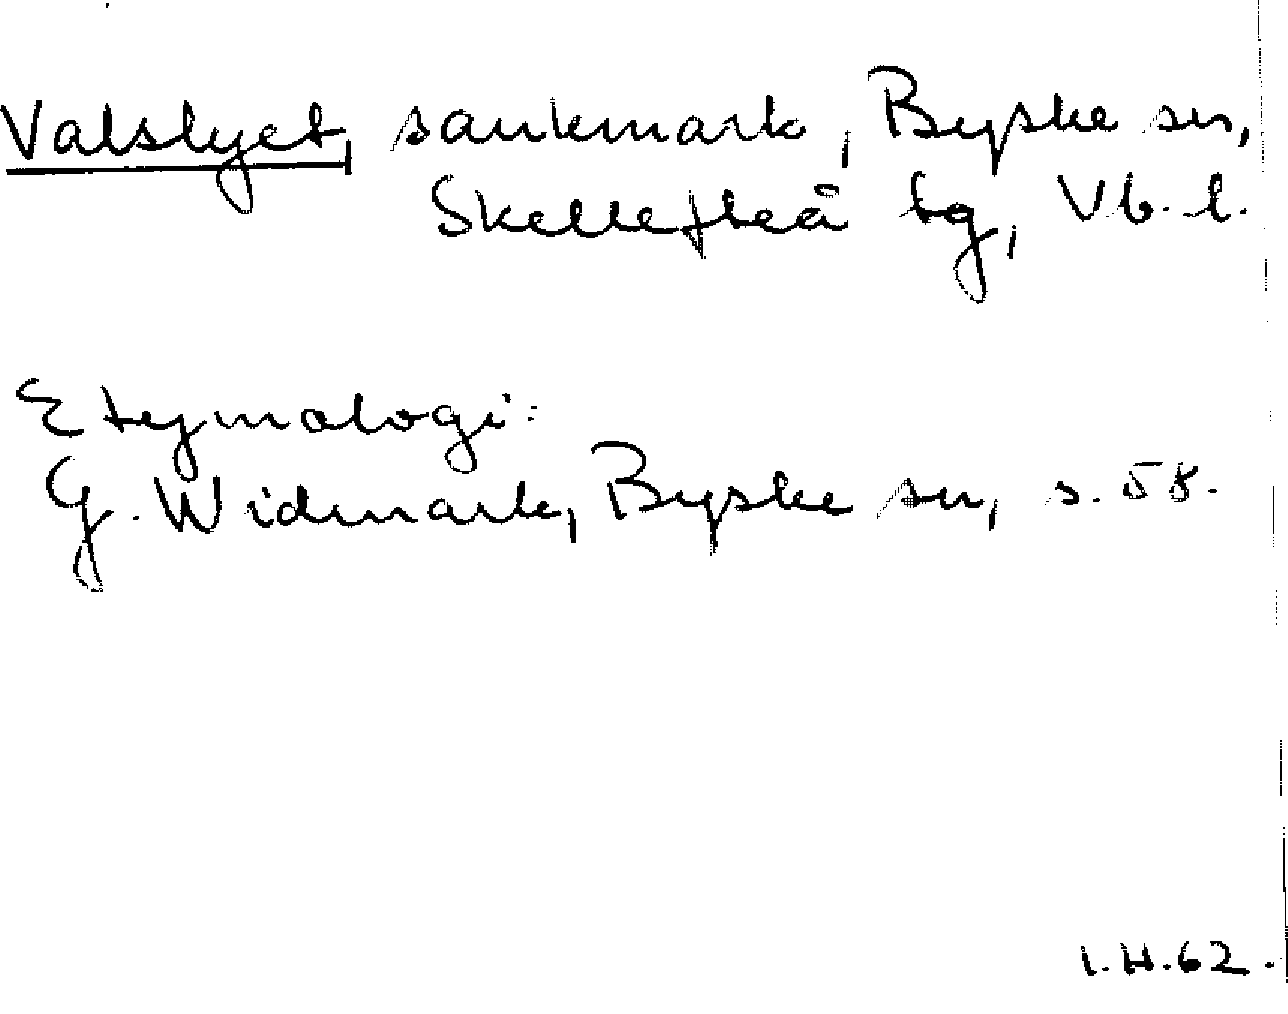 Valslyet, sankmark, Byske sn,
Skellefteå tg, Vb. l.
Etymologi:
G. Widmark, Byske sn, s. 58.
I.H.62.